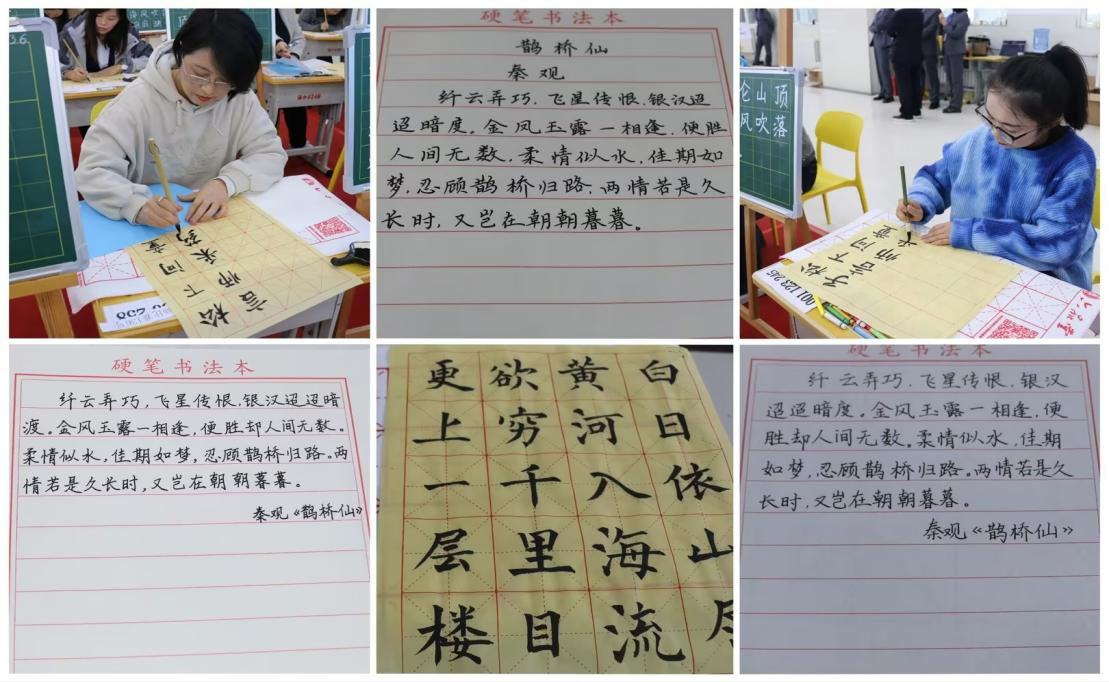 松下问童
言师采药
硬笔书法本
鹊桥仙
秦观
纤云弄巧．飞星传恨．银汉迢
迢暗度。金风玉露一相逢，便胜
人间无数，柔情似水，佳期如
梦，忍顾鹊桥归路．两情若是久
长时，又岂在朝朝暮暮。
仑山顶
风吹落
松下问童
子言师采
001123245
硬笔书法本
纤云弄巧，飞星传恨．银汉迢迢暗
渡。金风玉露一相逢，便胜却人间无数。
柔情似水，佳期如梦，忍顾鹊桥归路。两
情若是久长时，又岂在朝朝暮暮。
秦观《鹊桥仙》
白日依山尽
黄河入海流
欲穷千里目
更上一层楼
硬笔书法本
纤云弄巧．飞星传恨．银汉
迢迢暗度。金风玉露一相逢，便
胜却人间无数。柔情似水，佳期
如梦，忍顾鹊桥归路。两情若是久
长时，又岂在朝朝暮暮。
秦观《鹊桥仙》